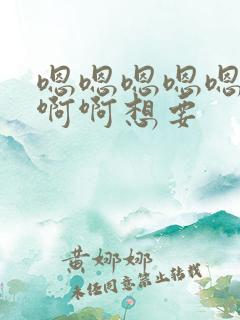 嗯嗯嗯嗯嗯
啊啊想要
黄娜娜
未经同意禁止转载